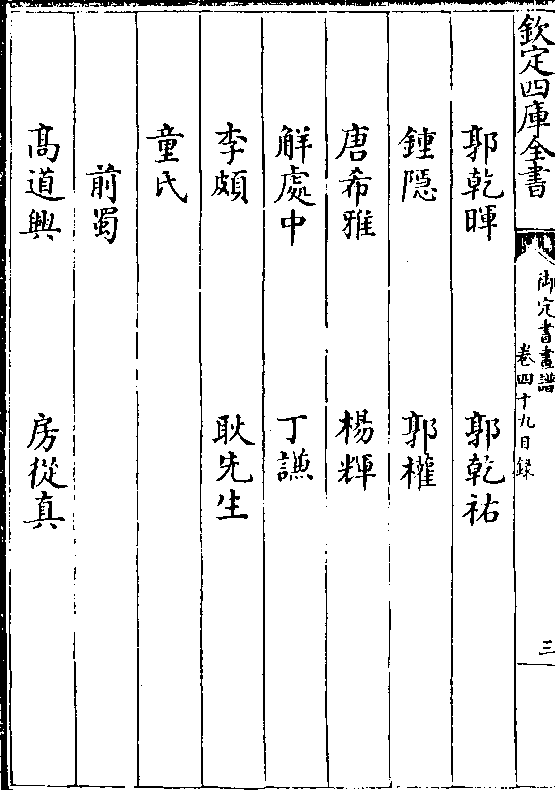 欽定四庫全書
御定書畫譜
卷四十九目録
三
郭乾暉 郭乾祐
鍾隠 郭權
唐希雅 楊輝
解處中 丁謙
李頗 耿先生
童氏
前蜀
高道興 房從真